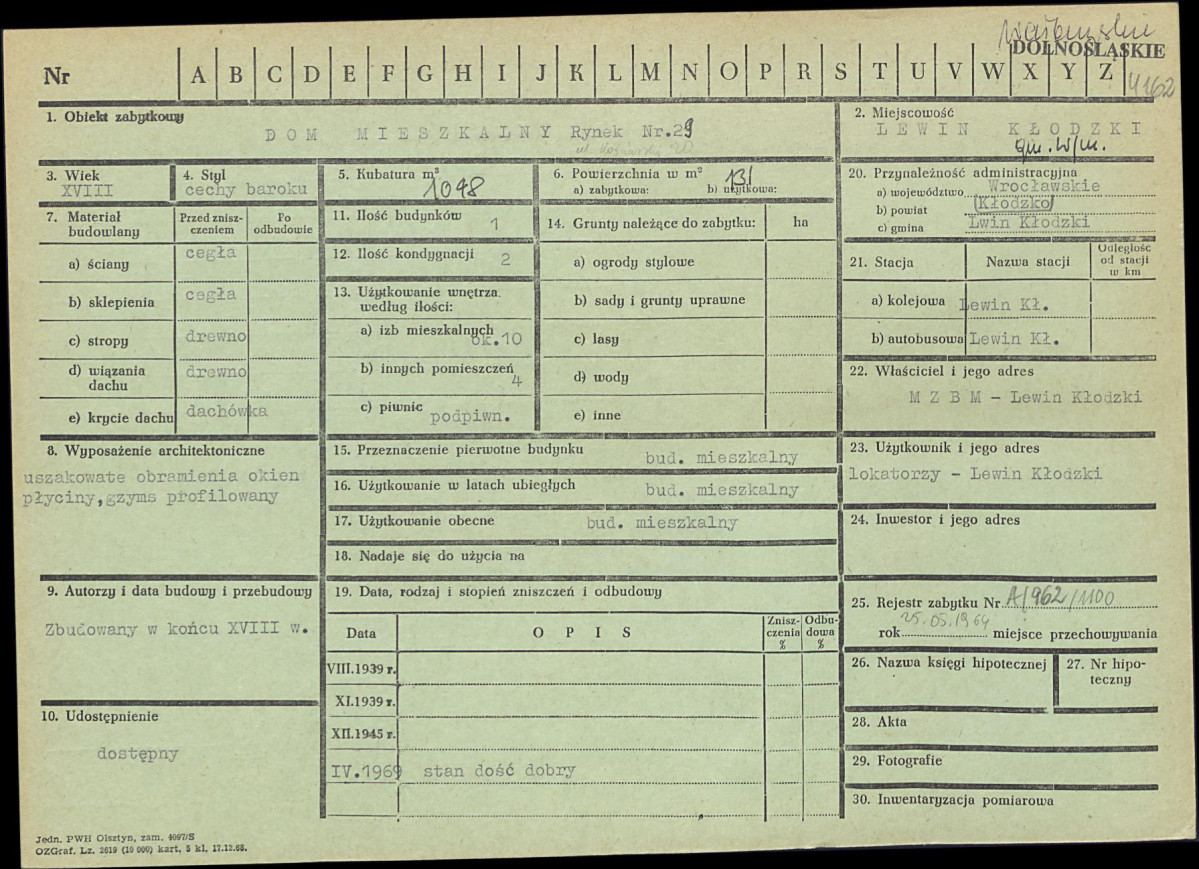 wałbrzyskie
DOLNOŚLĄSKIE
Nr A B C D E F G H I J K L M N O P R S T U V W X Y Z
4162
1. Obiekt zabytkowy
DOM MIESZKALNY Rynek Nr.29
2. Miejscowość
LEWIN KŁODZKI
gm. w/m.
3. Wiek
XVIII
4. Styl
cechy baroku
5. Kubatura m³
1098
6. Powierzchnia w m²
131
a) zabytkowa: b) użytkowa:
20. Przynależność administracyjna
a) województwo Wrocławskie
b) powiat (Kłodzko)
c) gmina Lwin Kłodzki
7. Materiał budowlany
Przed zniszczeniem
Po odbudowie
a) ściany cegła
b) sklepienia cegła
c) stropy drewno
d) wiązania dachu drewno
e) krycie dachu dachówka
11. Ilość budynków 1
12. Ilość kondygnacji 2
13. Użytkowanie wnętrza według ilości:
a) izb mieszkalnych ok.10
b) innych pomieszczeń 4
c) piwnic podpiwn.
14. Grunty należące do zabytku: ha
a) ogrody stylowe
b) sady i grunty uprawne
c) lasy
d) wody
e) inne
21. Stacja Nazwa stacji Odległość od stacji w km
a) kolejowa Lewin Kł.
b) autobusowa Lewin Kł.
22. Właściciel i jego adres
M Z B M - Lewin Kłodzki
8. Wyposażenie architektoniczne
uszakowate obramienia okien
płyciny,gzyms profilowany
15. Przeznaczenie pierwotne budynku bud. mieszkalny
16. Użytkowanie w latach ubiegłych bud. mieszkalny
17. Użytkowanie obecne bud. mieszkalny
18. Nadaje się do użycia na
23. Użytkownik i jego adres
lokatorzy - Lewin Kłodzki
24. Inwestor i jego adres
9. Autorzy i data budowy i przebudowy
Zbudowany w końcu XVIII w.
19. Data, rodzaj i stopień zniszczeń i odbudowy
Data OPIS Zniszczenia % Odbudowa %
VIII.1939 r.
XI.1939 r.
XII.1945 r.
IV.1969 stan dość dobry
25. Rejestr zabytku Nr A/962/1100
25.05.1964
rok miejsce przechowywania
26. Nazwa księgi hipotecznej
27. Nr hipoteczny
10. Udostępnienie
dostępny
28. Akta
29. Fotografie
30. Inwentaryzacja pomiarowa
Jedn. PWH Olsztyn, zam. 4097/S
OZGraf. Lz. 2619 (10 000) kart, 5 kl. 17.12.68.